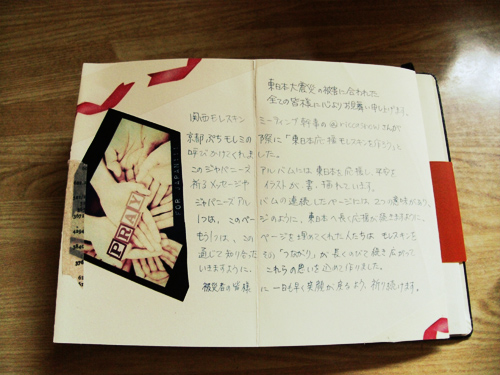 東日本大震災の被害に合われた
全ての皆様に心よりお見舞い申し上げます。
関西モレスキン ミーティング幹事の
京都ぷちモレミの際に「東日本応援モレスキンを作ろう」と
呼びかけてくれました。
このジャパニーズアルバムには東日本を応援し、平和を
祈るメッセージやイラストが、書・描れています。
ジャパニーズアルバムの連続したページには、2つの意味があり、
1つは、このページのように、東日本へ長く応援が続きますように。
もう1つは、このページを埋めてくれた人たちは モレスキンを
通じて知り合った 「つながり」が 長く
いきますように。これらの思いを込めて作りました。
被災者の皆様に一日も早く笑顔が戻るよう、祈り続けます。
PRAY
FOR JAPAN!!!